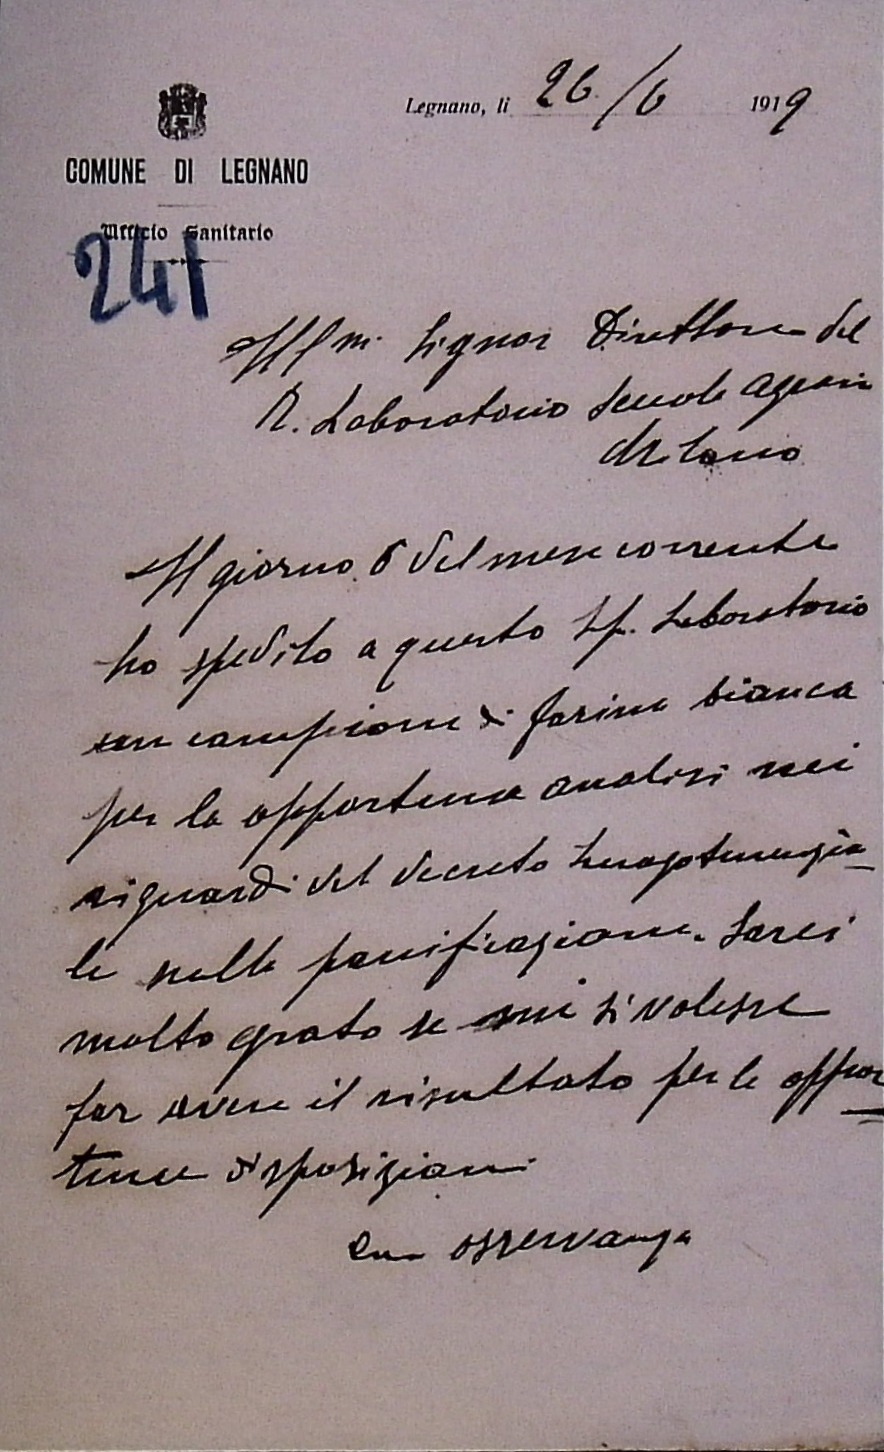 Legnano, li 26/6 1919
COMUNE DI LEGNANO
Ufficio Sanitario
241
Ill m. Signor Direttore del
R. Laboratorio Scuola Agraria
Milano
Il giorno 6 del mese corrente
ho spedito a questo Sp. Laboratorio
un campione di farina bianca
per le opportune analisi nei
riguardi del decreto Luogotenenzia-
le sulla panificazione. Sarei
molto grato se mi si volesse
far avere il risultato per le oppor-
tune disposizioni
Con osservanza